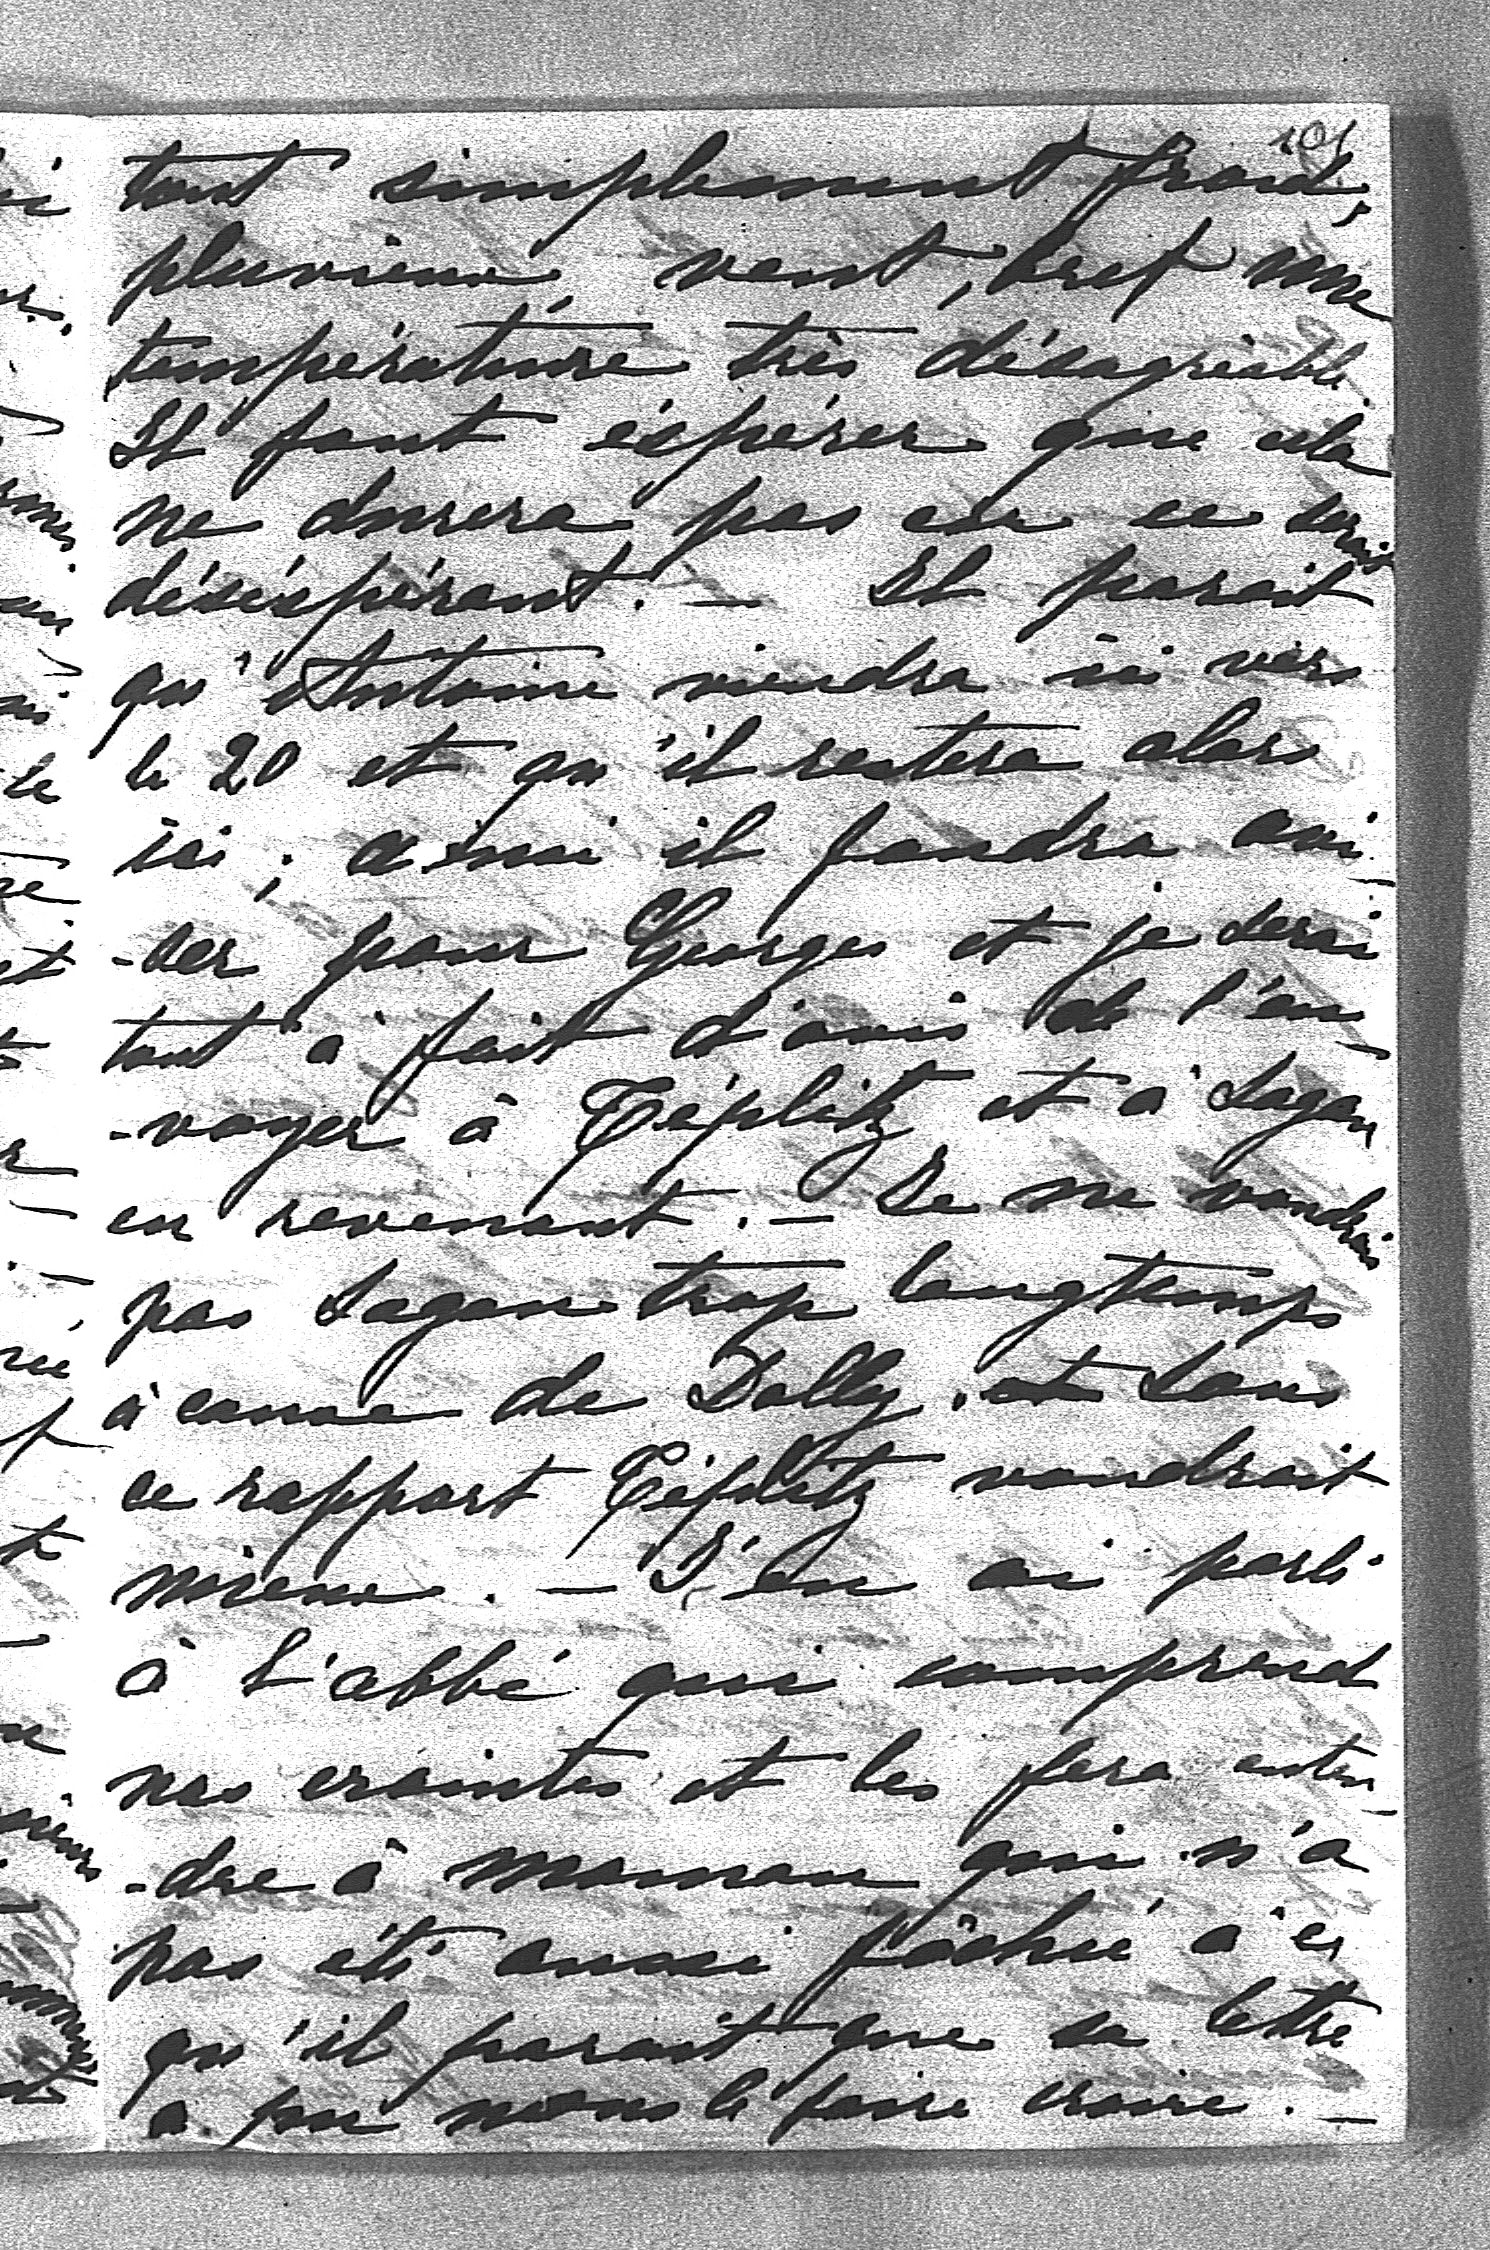 101
tout simplement froid,
pluvieux, vent, bref une
température très désagréable.
Il faut éspérer que cela
ne durera pas car ce serait
déséspérant. — Il parait
qu'Antoine viendra ici vers
le 20 et qu'il restera alors
ici; ainsi il faudra avi-
-ser pour Georges et je serai
tout à fait d'avis de l'en-
-voyer à Téplitz et à Sagan
en revenant. — Je ne voudrais
pas Sagan trop longtemps
à cause de Dolly. et sous
ce rapport Téplitz vaudrait
mieux. — J'en ai parlé
à L'abbé qui comprend
nos craintes et les fera enten-
-dre à maman qui n'a
pas été aussi fâchée à ce
qu'il parait que sa lettre
a pu nous le faire croire. —